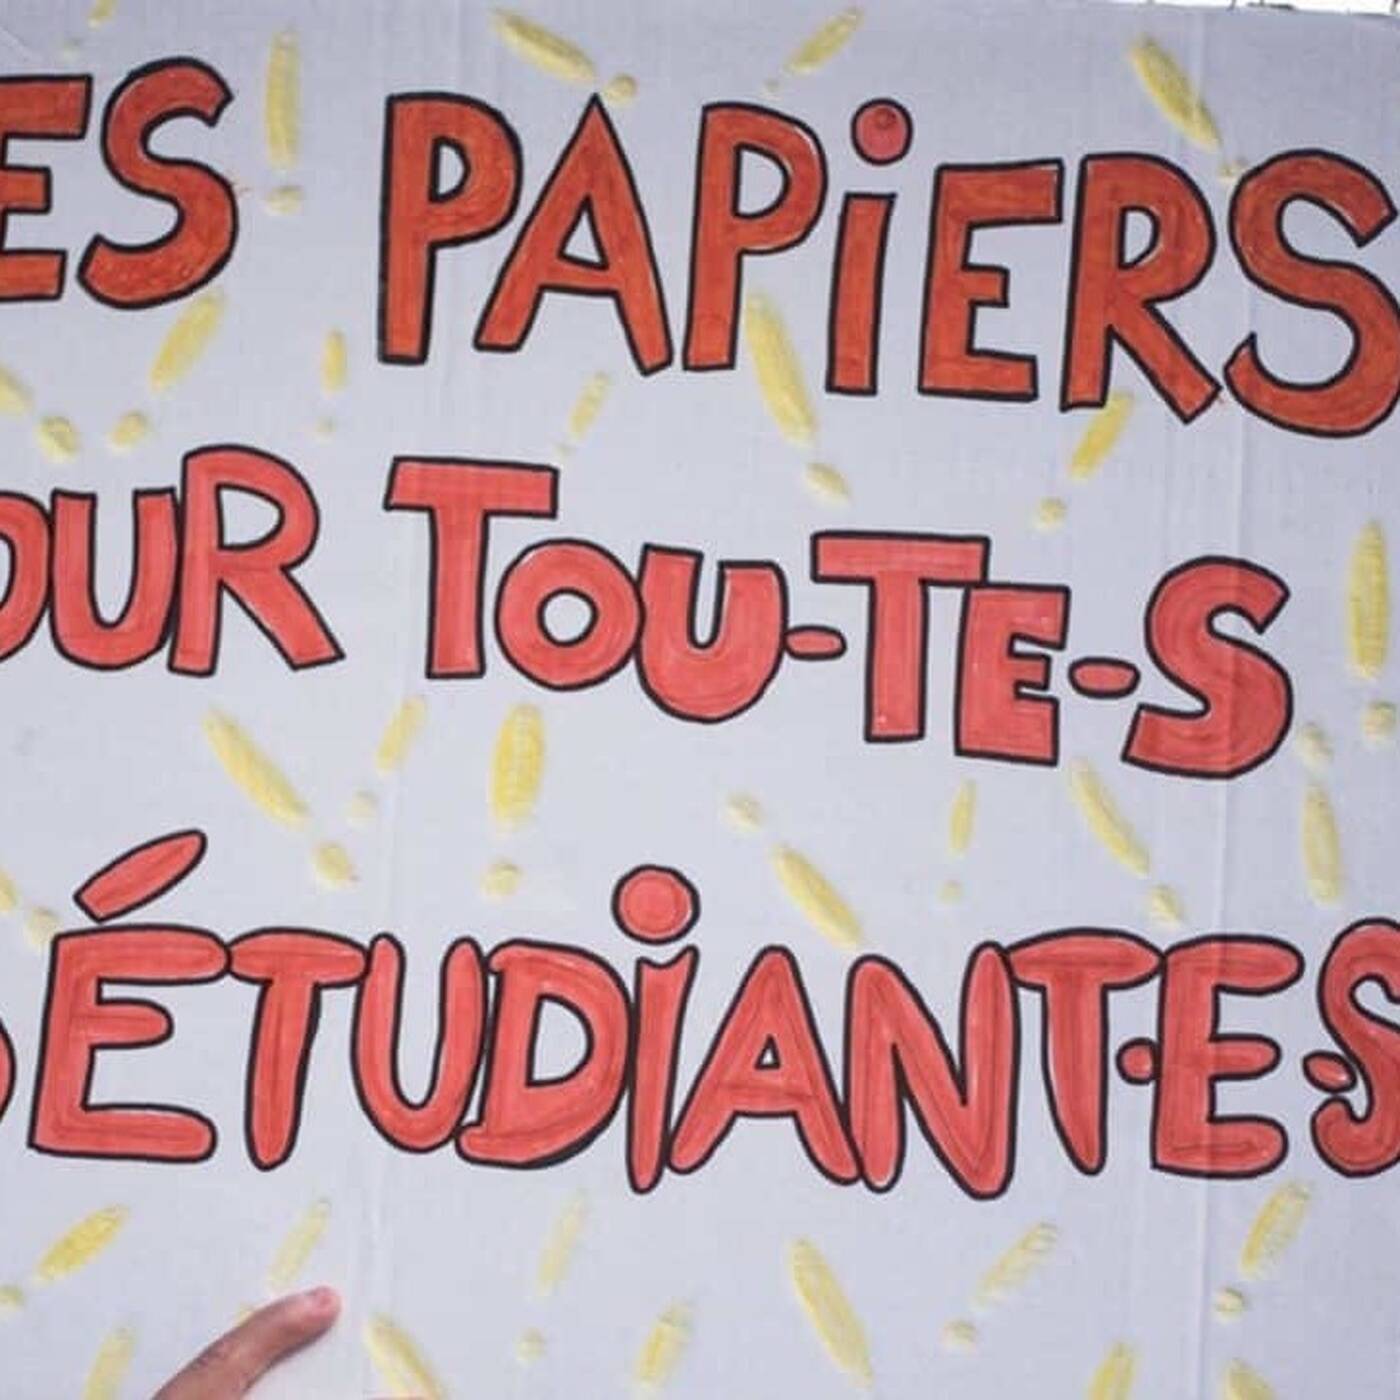 ES PAPiERS
OUR TOU-TE-S
ÉTUDiANT·E·S